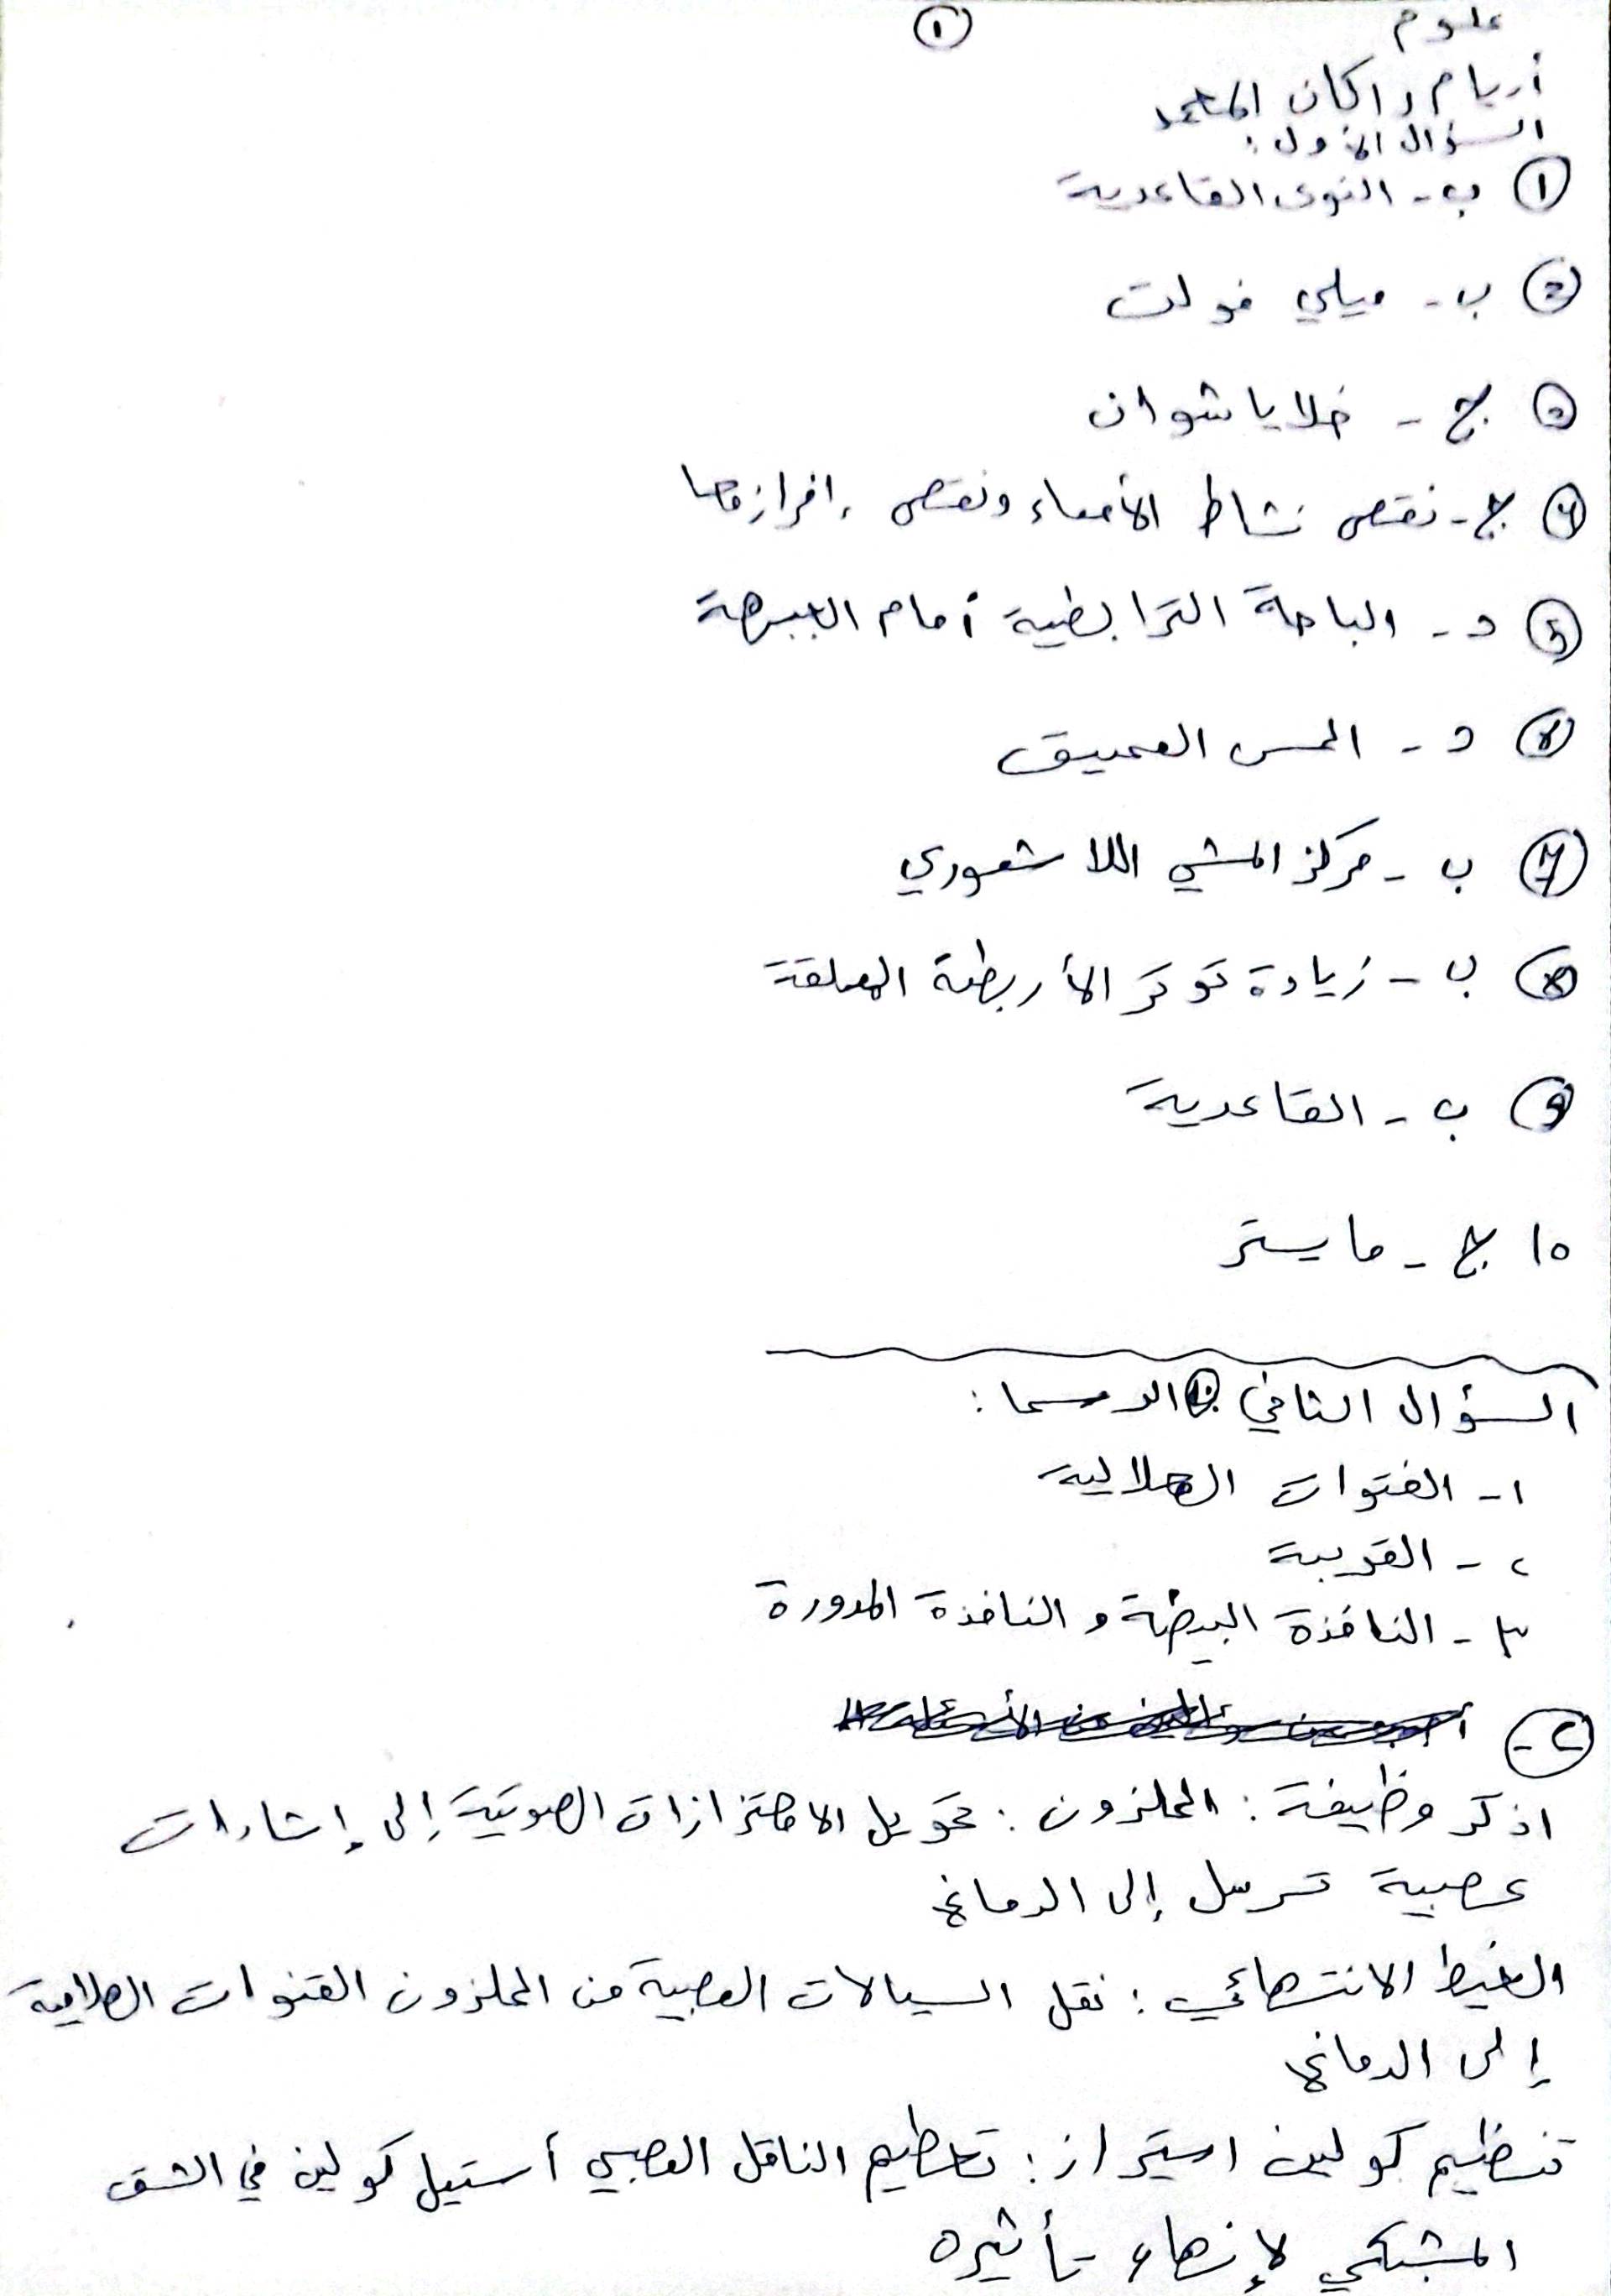 علوم
①
أريام راكان
السؤال الأول:
① ب- النوى القاعدية
② ب- ميلي فولت
③ ج- خلايا شوان
④ ج- نقص نشاط الأمعاء ونقص إفرازها
⑤ د- الباحة الترابطية أمام الجبهية
⑥ د- الحس العميق
⑦ ب- مركز المشي اللاشعوري
⑧ ب- زيادة توتر الأربطة المعلقة
⑨ ب- القاعدية
10 ج- مايستر
السؤال الثاني
١- القنوات الهلالية
٢- القريبة
٣- النافذة البيضية و النافذة المدورة
٢-
اذكر وظيفة: الحلزون: تحويل الاهتزازات الصوتية إلى إشارات
عصبية ترسل إلى الدماغ
الخيط الانتهائي: نقل السيالات العصبية من الحلزون القنوات الهلالية
إلى الدماغ
تنظيم كولين استراز: تحطيم الناقل العصبي أستيل كولين في الشق
المشبكي لإنهاء تأثيره